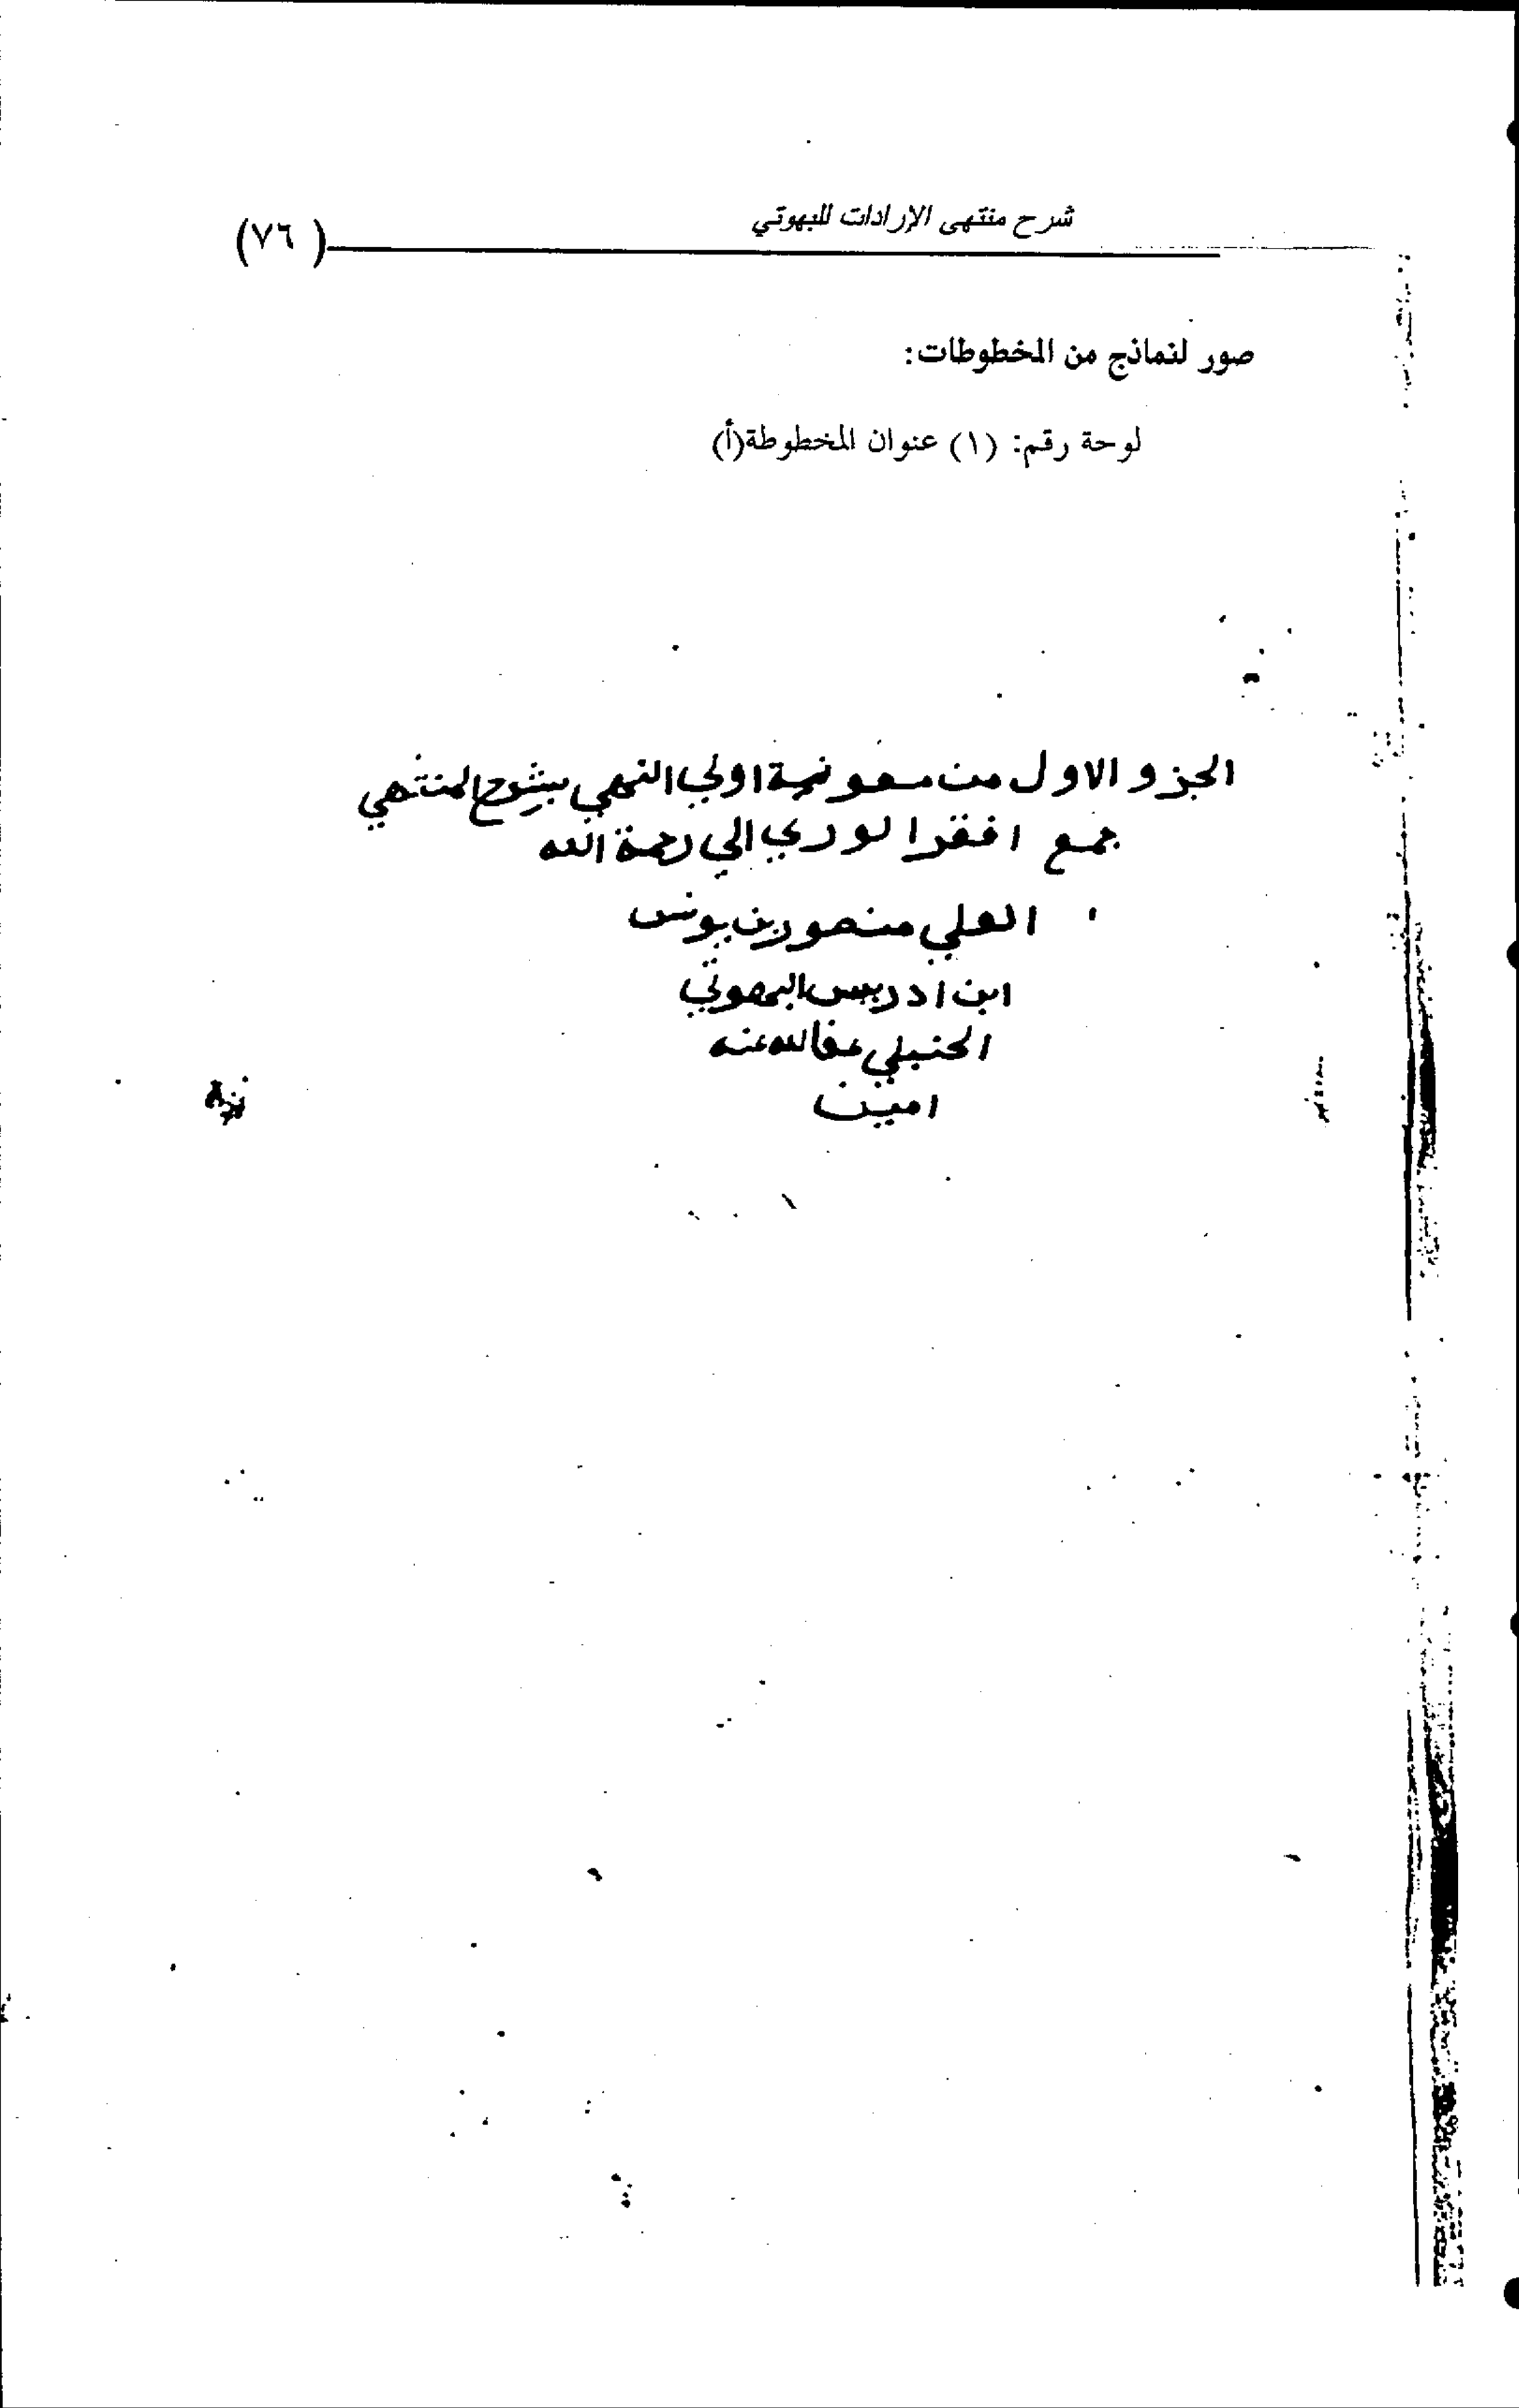 شرح منتهى الإرادات للبهوتي
(٧٦)
صور لنماذج من المخطوطات:
لوحة رقم: (١) عنوان المخطوطة(أ)
الجزو الاول من معونة اولي النهي بشرح المنتهي
جمع افقر الوري الي رحمة الله
العلي منصور بن يونس
ابن ادريس البهوتي
الحنبلي عفا الله عنه
امين